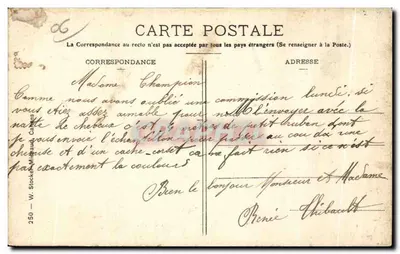 CARTE POSTALE
La Correspondance au recto n'est pas acceptée par tous les pays étrangers (Se renseigner à la Poste.)
CORRESPONDANCE
ADRESSE
Madame Champion
Comme nous avons oublié une commission lundi, si
vous étiez assez aimable pour nous l'envoyer avec la
natte de cheveux c'est de petit ruban dont
je vous envoi l'échantillon pour passer au cou d'une
chemise et d'un cache-corset ça ne fait rien si ce n'est
pas exactement la couleur
Bien le bonjour Monsieur et Madame
Renée Thibault
250 - W. Stocker